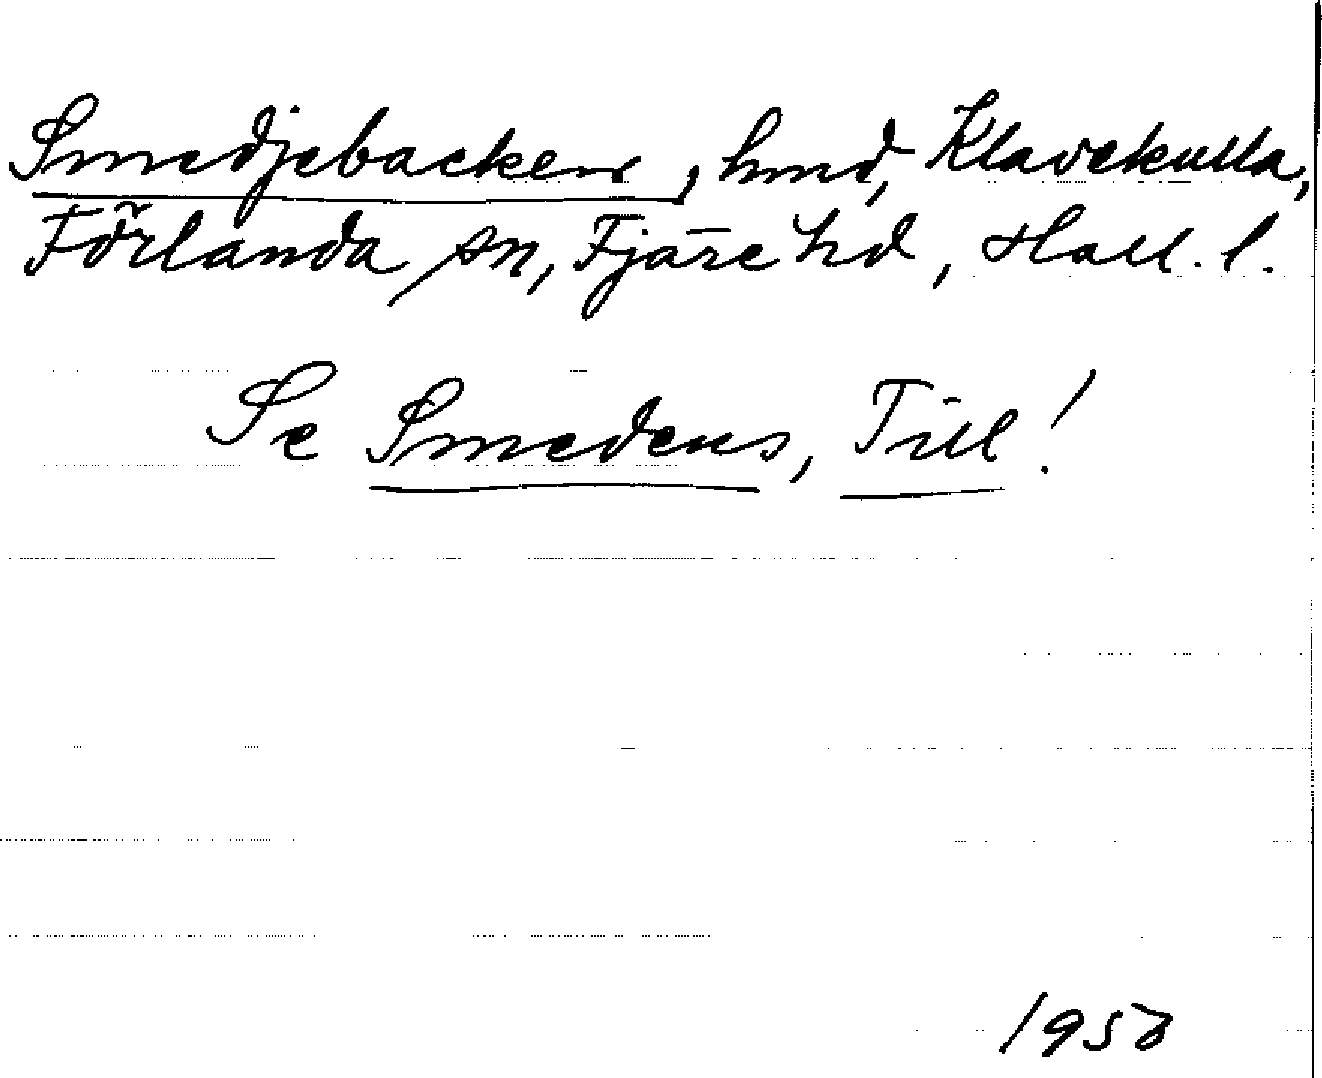 Smedjebacken, hmd, Klavekulla,
Förlanda sn, Fjäre hd, Hall. l.
Se Smedens, Till!
1958